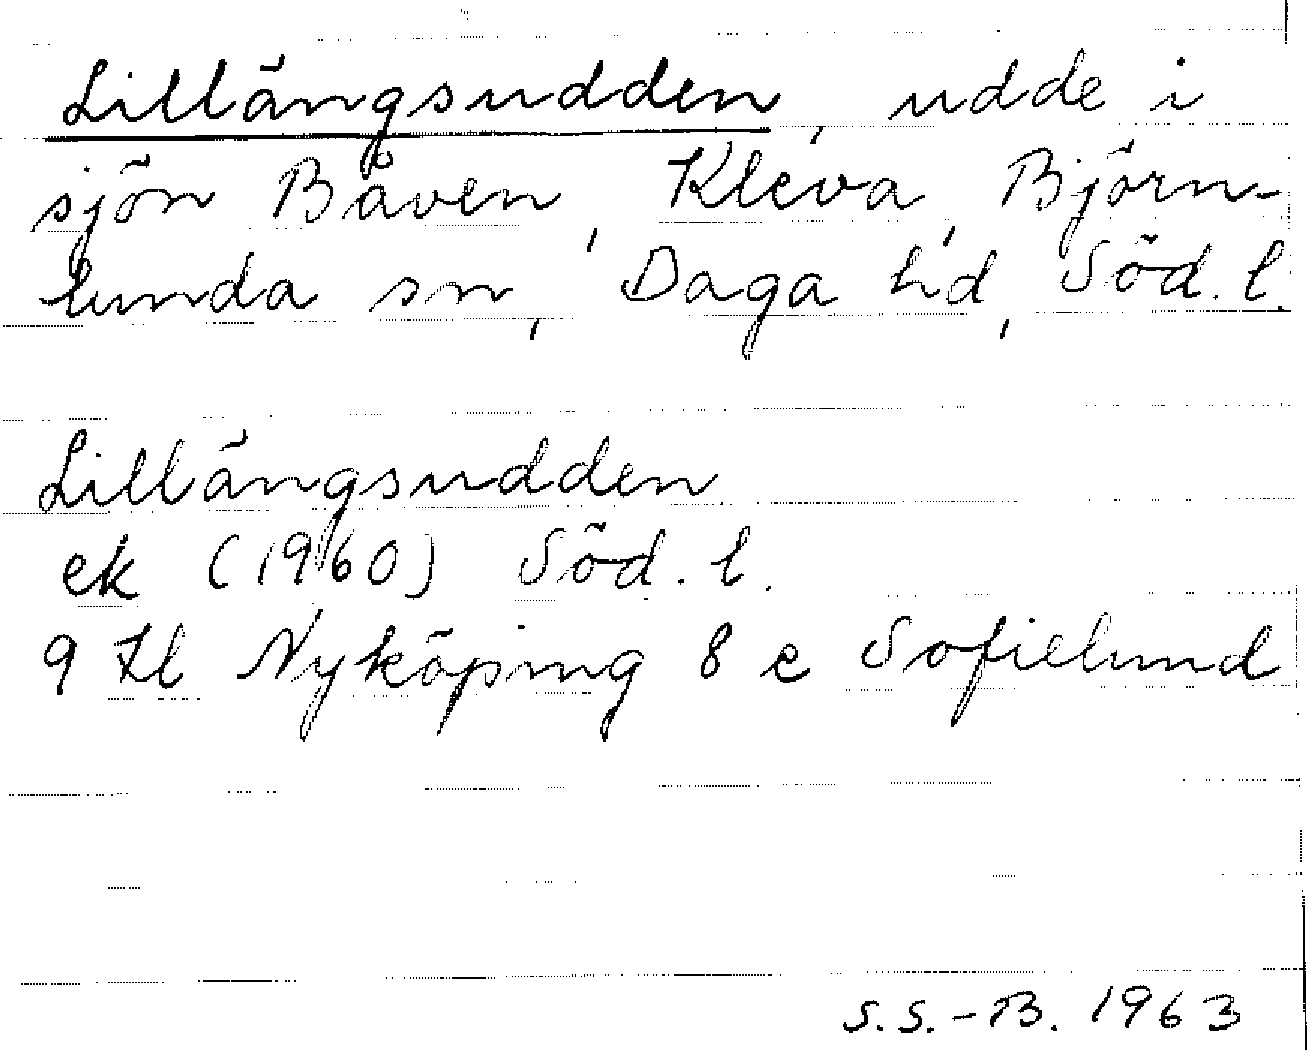 Lillängsudden, udde i
sjön Båven, Kleva, Björn-
lunda sn, Daga hd, Söd. l.
Lillängsudden
ek (1960) Söd. l.
9 Nyköping 8 e Sofielund
S.S.-B. 1963